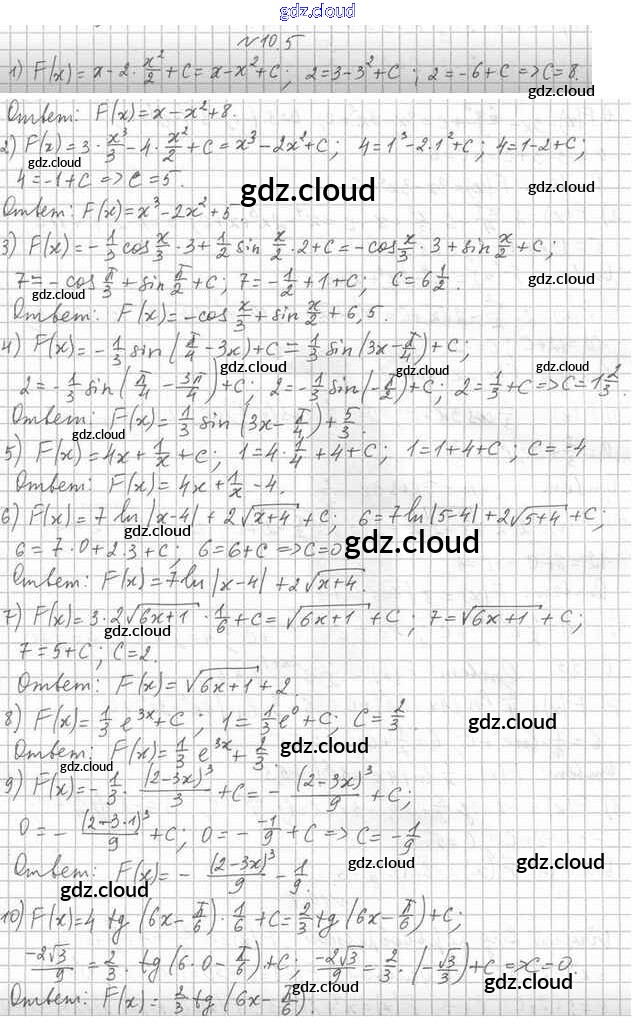 gdz.cloud
№10.5
1) F(x) = x - 2 · x²/2 + C = x - x² + C; 2 = 3 - 3² + C; 2 = -6 + C => C = 8.
gdz.cloud
Ответ: F(x) = x - x² + 8.
2) F(x) = 3 · x³/3 - 4 · x²/2 + C = x³ - 2x² + C; 4 = 1³ - 2·1² + C; 4 = 1 - 2 + C;
gdz.cloud gdz.cloud
4 = -1 + C => C = 5. gdz.cloud
Ответ: F(x) = x³ - 2x² + 5.
3) F(x) = -1/3 cos x/3 · 3 + 1/2 sin x/2 · 2 + C = -cos x/3 · 3 + sin x/2 + C;
7 = -cos π/3 + sin π/2 + C; 7 = -1/2 + 1 + C; C = 6 1/2. gdz.cloud
gdz.cloud
Ответ: F(x) = -cos x/3 + sin x/2 + 6,5.
4) F(x) = -1/3 sin(π/4 - 3x) + C = 1/3 sin(3x - π/4) + C;
gdz.cloud gdz.cloud gdz.cloud
2 = -1/3 sin(π/4 - 3π/4) + C; 2 = -1/3 sin(-π/2) + C; 2 = 1/3 + C => C = 1 2/3.
Ответ: F(x) = 1/3 sin(3x - π/4) + 5/3.
gdz.cloud
5) F(x) = 4x + 1/x + C; 1 = 4 · 1/4 + 4 + C; 1 = 1 + 4 + C; C = -4
Ответ: F(x) = 4x + 1/x - 4.
6) F(x) = 7 ln|x-4| + 2√(x+4) + C; 6 = 7 ln|5-4| + 2√(5+4) + C;
gdz.cloud
6 = 7 · 0 + 2·3 + C; 6 = 6 + C => C = 0 gdz.cloud
Ответ: F(x) = 7 ln|x-4| + 2√(x+4).
gdz.cloud
7) F(x) = 3 · 2√(6x+1) · 1/6 + C = √(6x+1) + C; 7 = √(6x+1) + C;
gdz.cloud
7 = 5 + C; C = 2.
Ответ: F(x) = √(6x+1) + 2.
8) F(x) = 1/3 e^3x + C; 1 = 1/3 e⁰ + C; C = 2/3. gdz.cloud
Ответ: F(x) = 1/3 e^3x + 2/3. gdz.cloud
gdz.cloud
9) F(x) = -1/3 · (2-3x)³/3 + C = -(2-3x)³/9 + C;
0 = -(2-3·1)³/9 + C; 0 = -(-1)/9 + C => C = -1/9
Ответ: F(x) = -(2-3x)³/9 - 1/9. gdz.cloud gdz.cloud
gdz.cloud
10) F(x) = 4 tg(6x - π/6) · 1/6 + C = 2/3 tg(6x - π/6) + C;
-2√3/9 = 2/3 · tg(6·0 - π/6) + C; -2√3/9 = 2/3 · (-√3/3) + C => C = 0.
gdz.cloud
Ответ: F(x) = 2/3 tg(6x - π/6). gdz.cloud
gdz.cloud